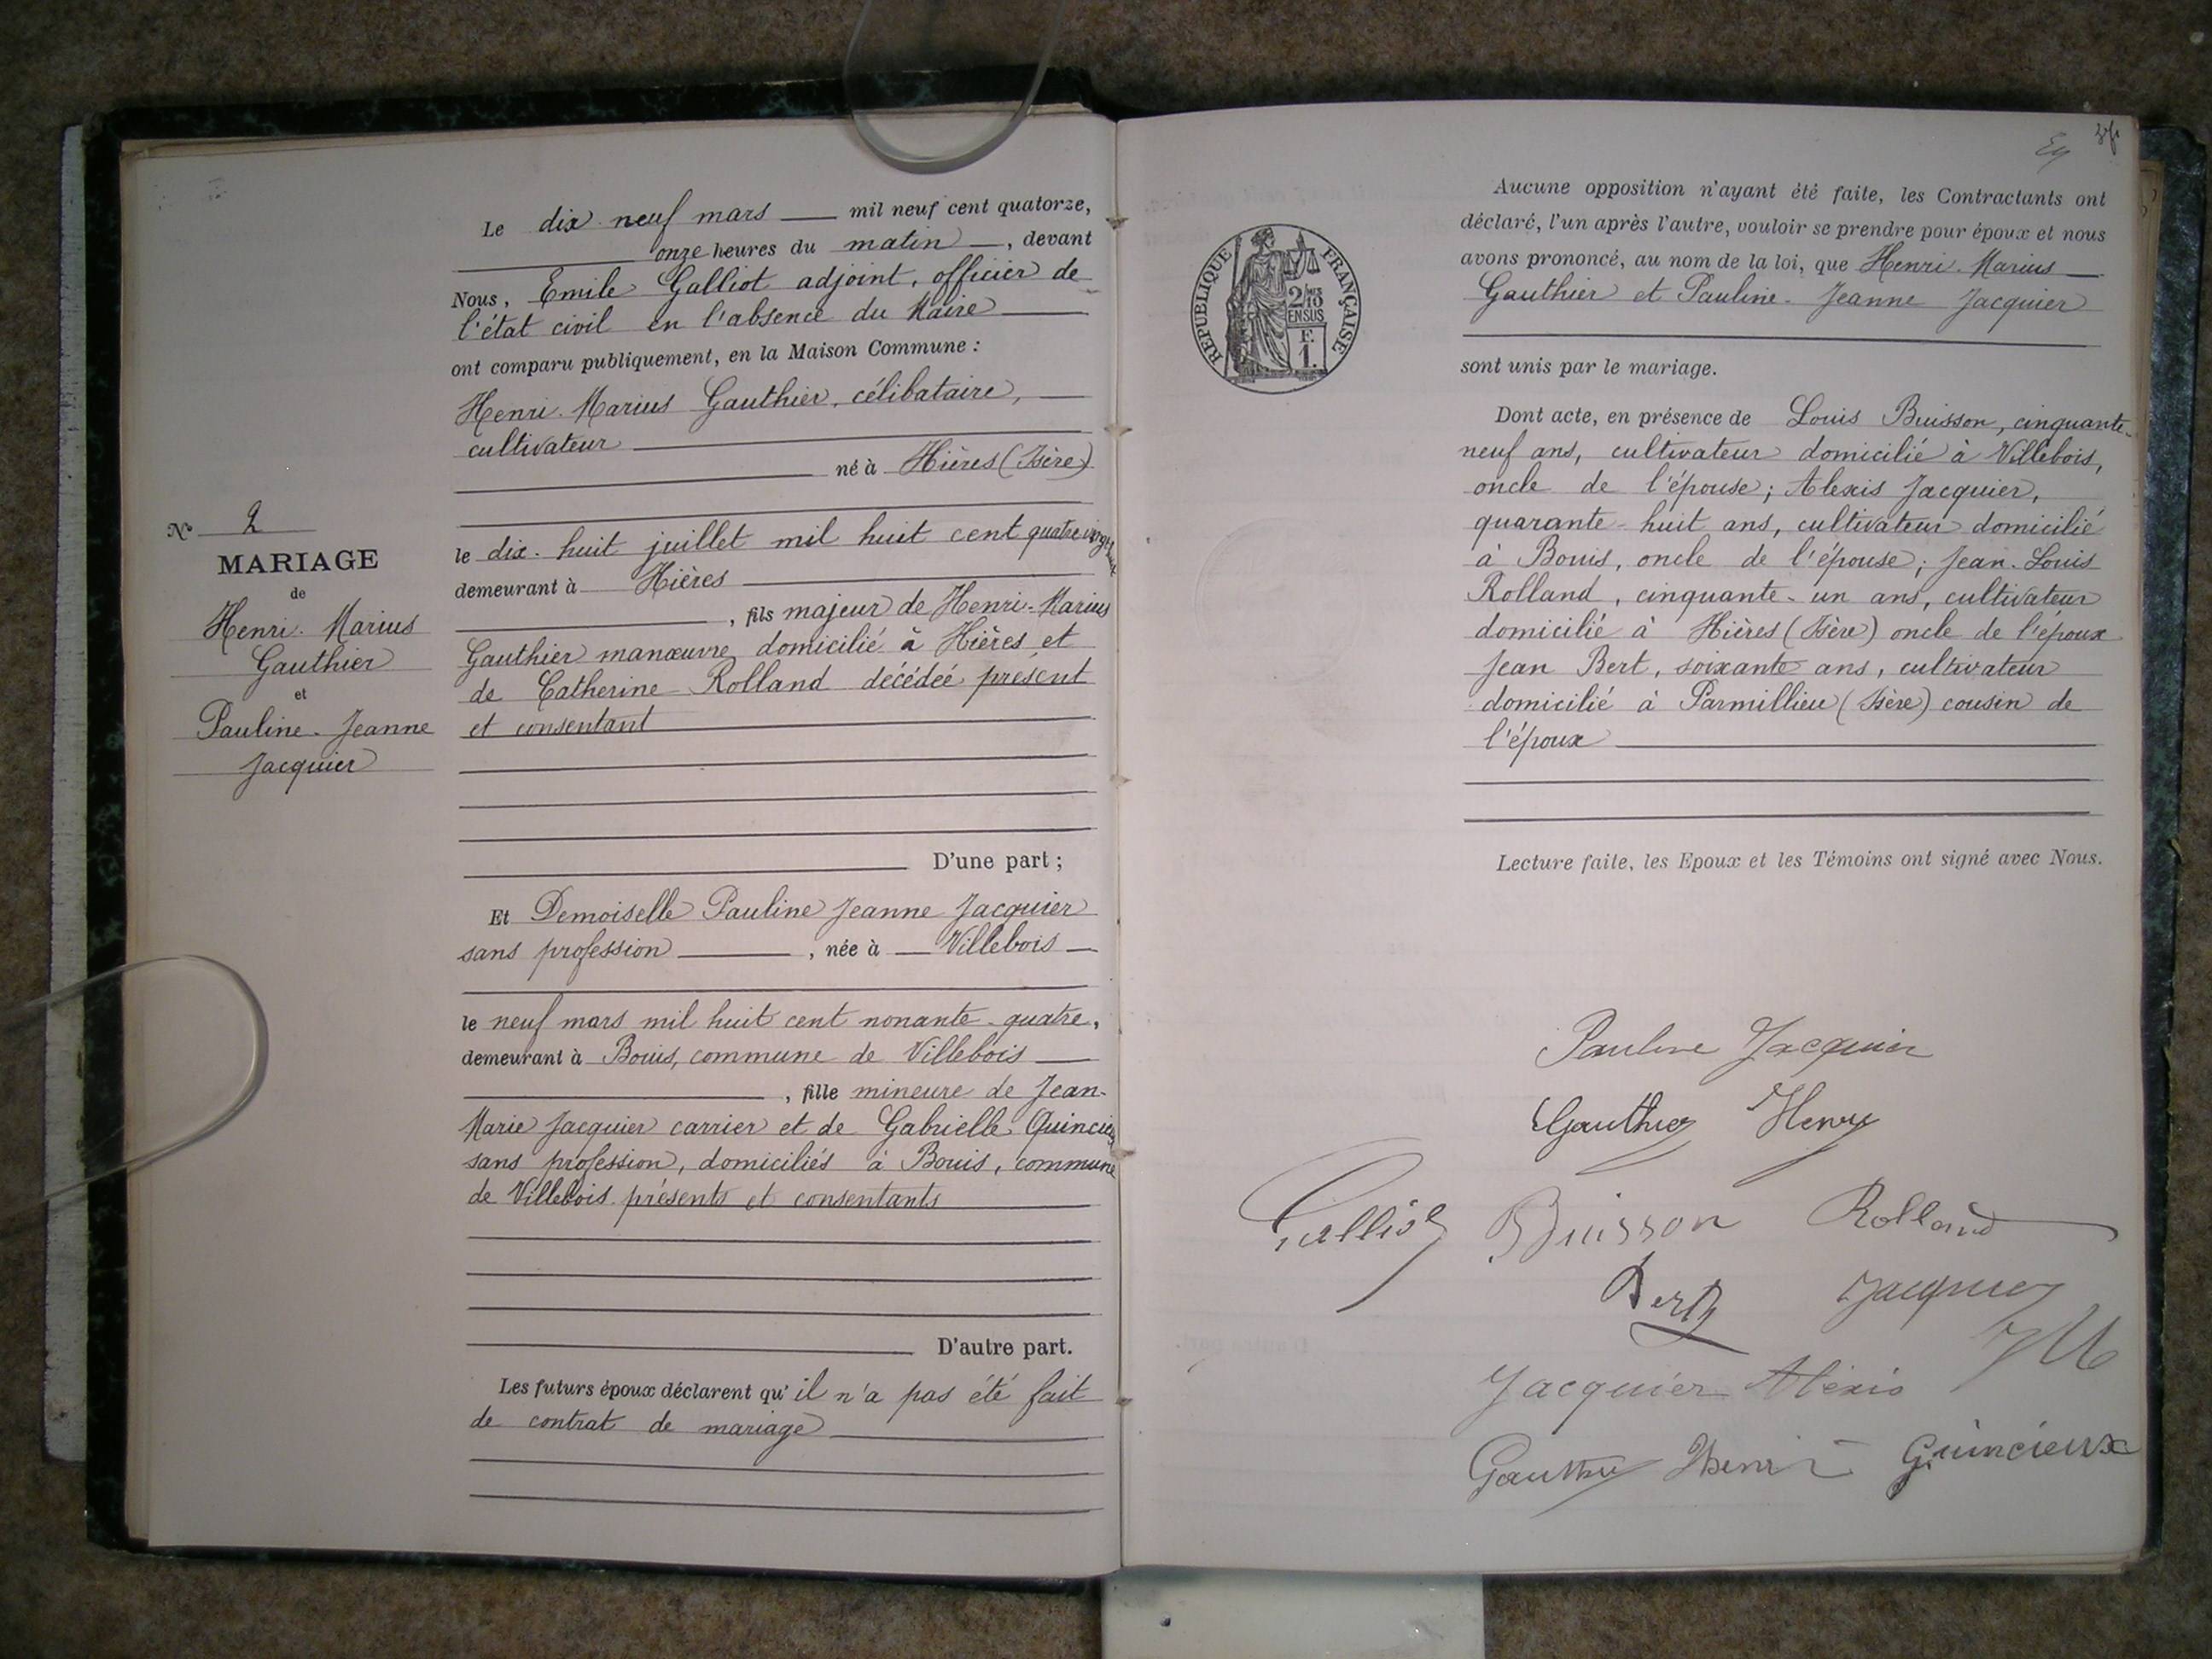 Nº 2
MARIAGE
de
Henri-Marius
Gauthier
et
Pauline-Jeanne
Jacquier
Le dix-neuf mars mil neuf cent quatorze,
onze heures du matin, devant
Nous, Emile Galliot adjoint, officier de
l'état civil en l'absence du Maire
ont comparu publiquement, en la Maison Commune :
Henri-Marius Gauthier, célibataire,
cultivateur
né à Hières (Isère)
le dix-huit juillet mil huit cent quatre vingt
demeurant à Hières
, fils majeur de Henri-Marius
Gauthier manœuvre, domicilié à Hières et
de Catherine Rolland décédée, présent
et consentant
D'une part ;
Et Demoiselle Pauline Jeanne Jacquier
sans profession, née à Villebois
le neuf mars mil huit cent nonante-quatre,
demeurant à Bouis, commune de Villebois
, fille mineure de Jean-
Marie Jacquier carrier et de Gabrielle Quincieu
sans profession, domiciliés à Bouis, commune
de Villebois présents et consentants
D'autre part.
Les futurs époux déclarent qu'il n'a pas été fait
de contrat de mariage
RÉPUBLIQUE FRANÇAISE
2/10
EN SUS
F.
1.
Aucune opposition n'ayant été faite, les Contractants ont
déclaré, l'un après l'autre, vouloir se prendre pour époux et nous
avons prononcé, au nom de la loi, que Henri-Marius
Gauthier et Pauline-Jeanne Jacquier
sont unis par le mariage.
Dont acte, en présence de Louis Buisson, cinquante-
neuf ans, cultivateur domicilié à Villebois,
oncle de l'épouse; Alexis Jacquier,
quarante-huit ans, cultivateur domicilié
à Bouis, oncle de l'épouse; Jean-Louis
Rolland, cinquante-un ans, cultivateur
domicilié à Hières (Isère) oncle de l'époux
Jean Bert, soixante ans, cultivateur
domicilié à Parmillieu (Isère) cousin de
l'époux
Lecture faite, les Epoux et les Témoins ont signé avec Nous.
Pauline Jacquier
Gauthier Henry
Galliot Buisson Rolland
Bert Jacquier
JM
Jacquier Alexis
Gauthier Henri Quincieux